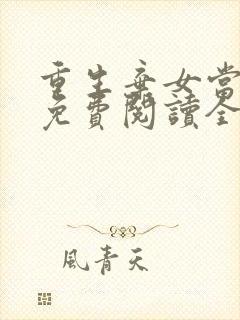 重生棄女當
免費閱讀全
風青天